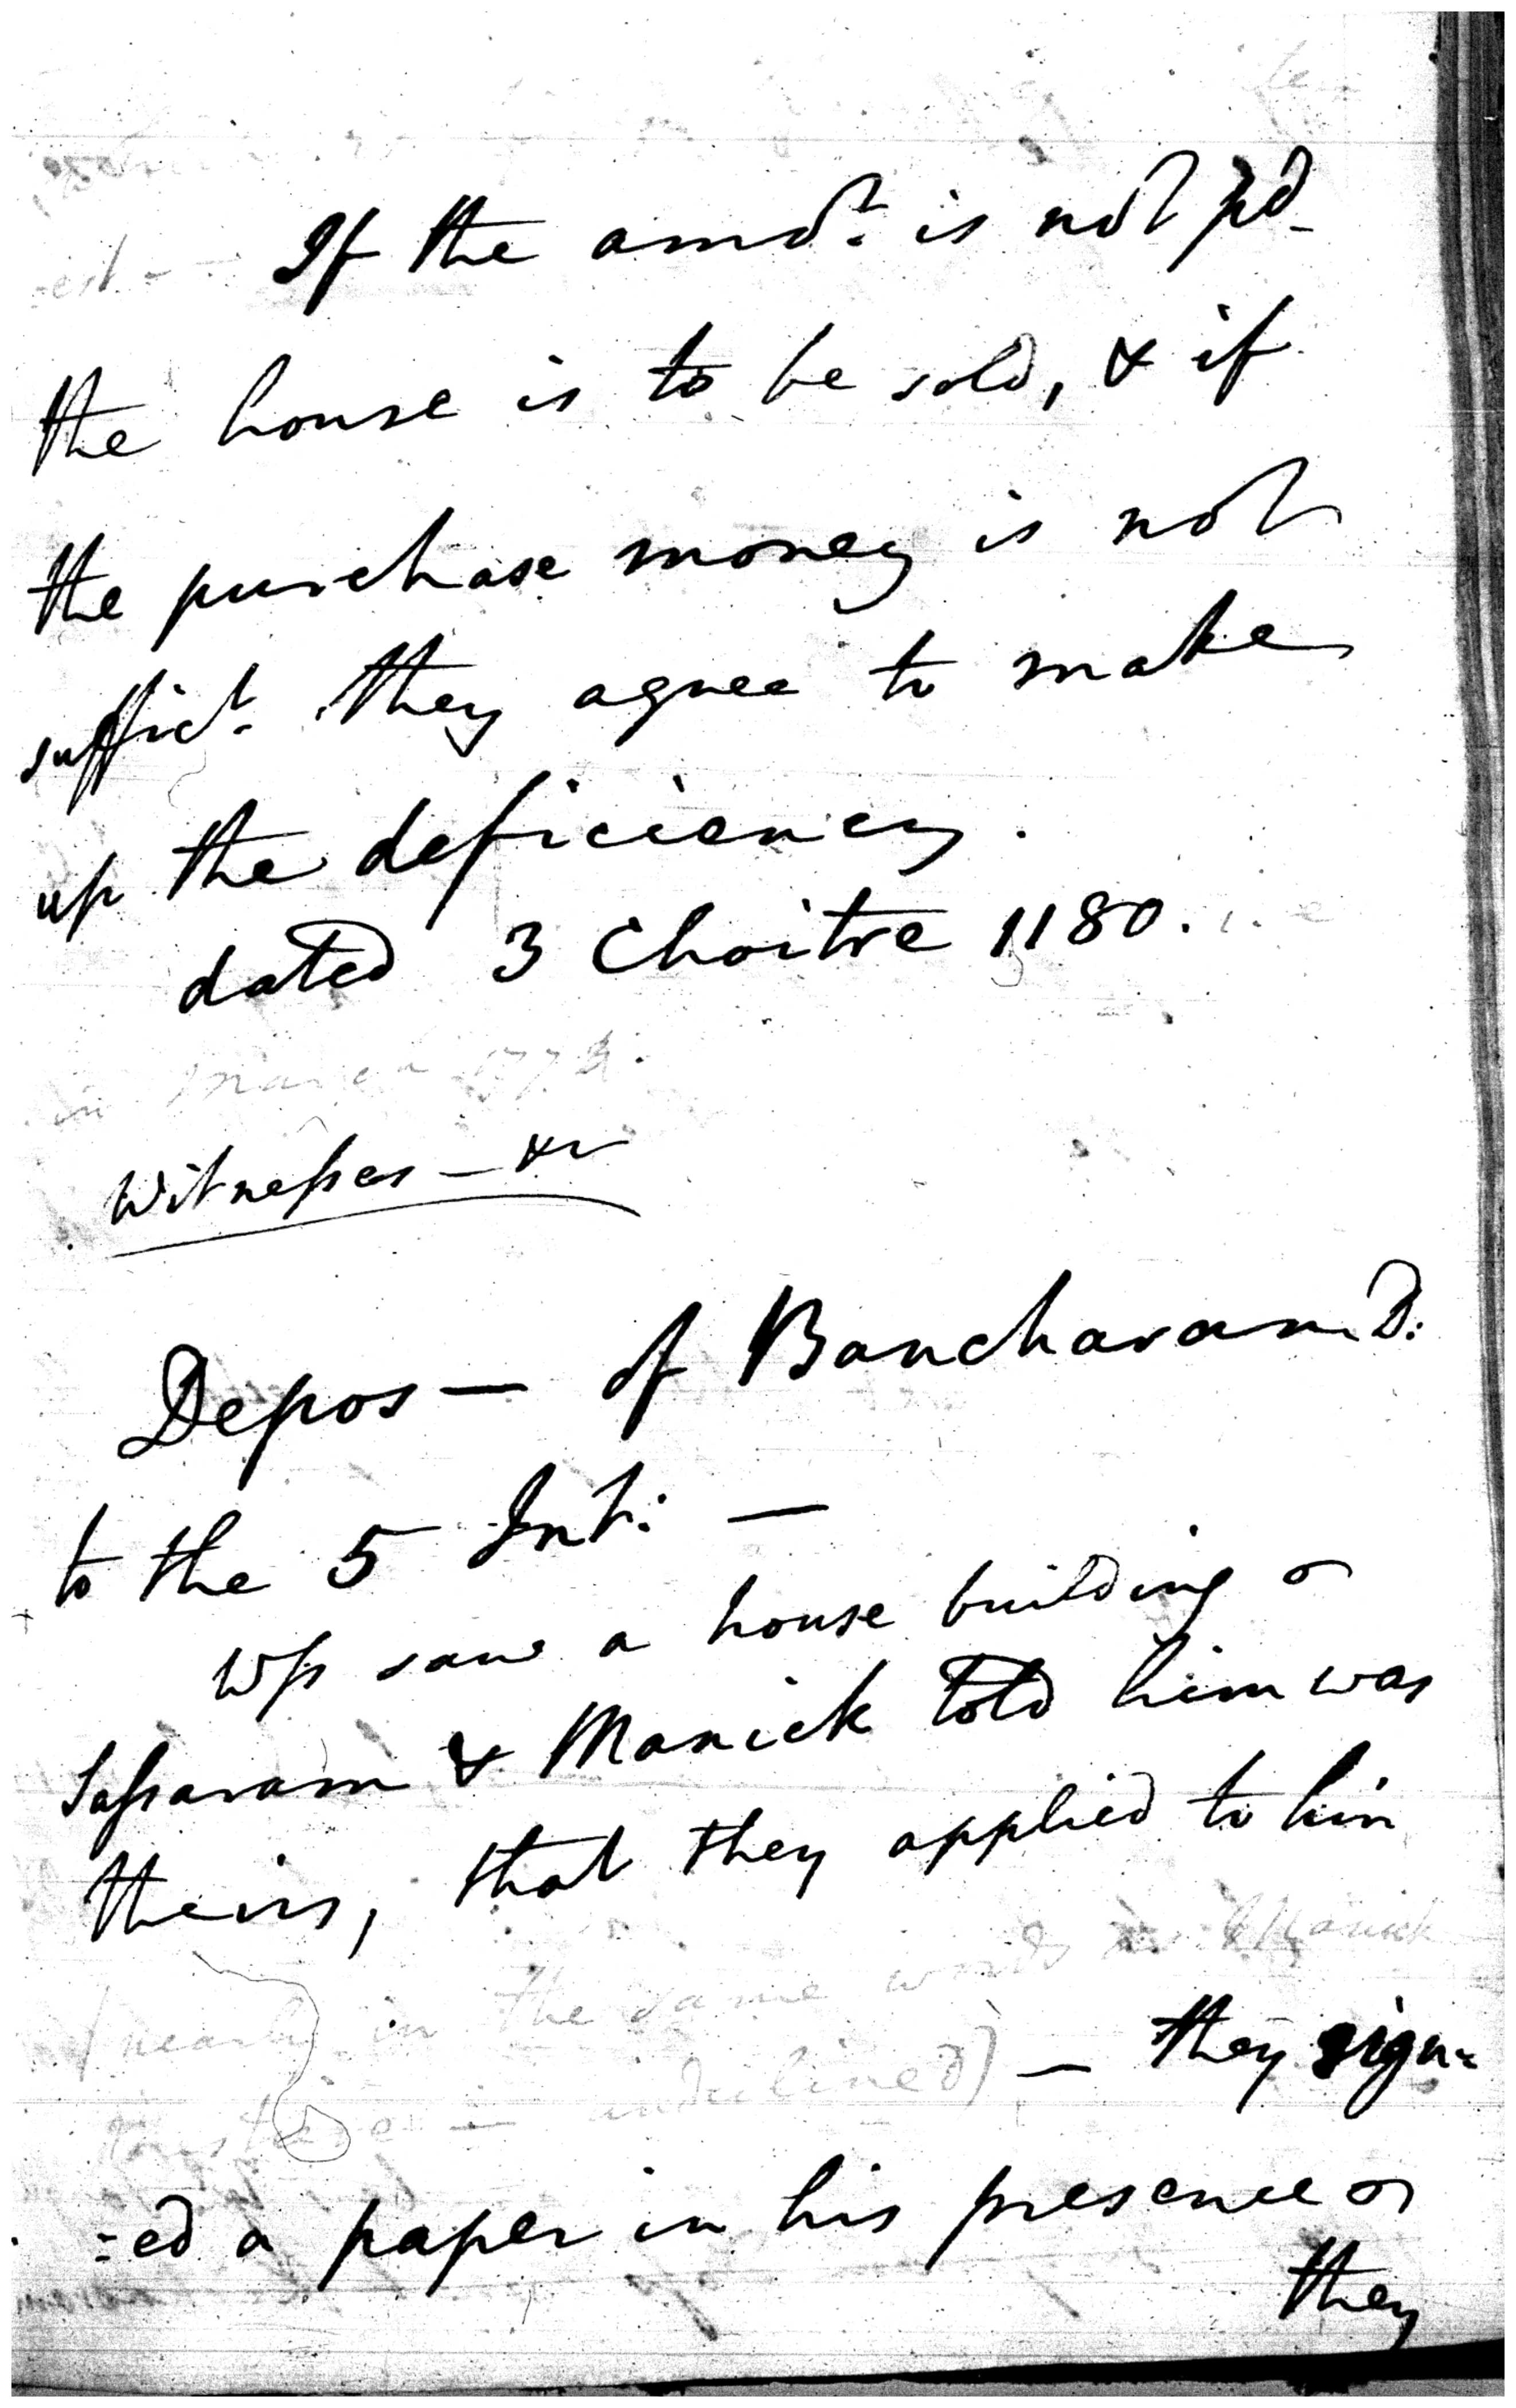 If the amot. is not pd_
the house is to be sold, & if
the purchase money is not
suffict. they agree to make
up the deficiency.
dated 3 Choitre 1180. i.e
in March 177
Witnesses — &c
Depos — of Bancharam D:
to the 5 Int: —
Wss saw a house building
Sassaram & Manick told him was
theirs, that they applied to him
(nearly in the same words Manick
underlined) — they sign=
=ed a paper in his presence
they